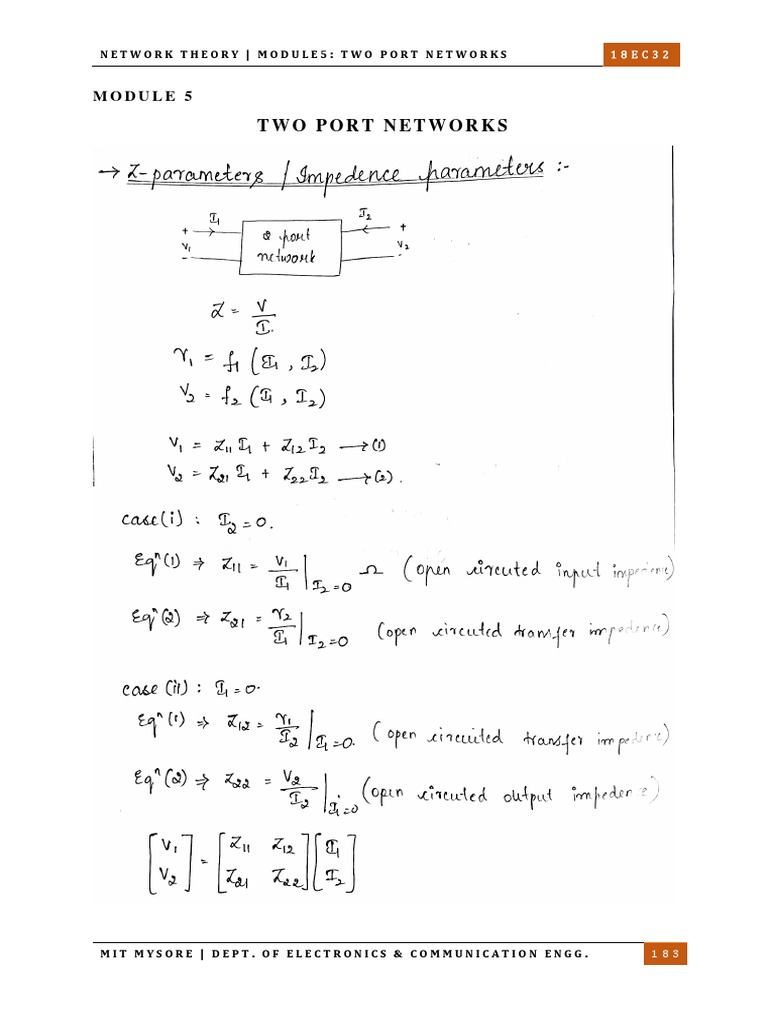 NETWORK THEORY | MODULE5: TWO PORT NETWORKS 18EC32
MODULE 5
TWO PORT NETWORKS
→ Z-parameters / Impedence parameters :-
I₁ I₂
+ 2 port +
V₁ network V₂
- -
Z = V/I
V₁ = f₁ (I₁, I₂)
V₂ = f₂ (I₁, I₂)
V₁ = Z₁₁ I₁ + Z₁₂ I₂ → (1)
V₂ = Z₂₁ I₁ + Z₂₂ I₂ → (2).
case(i) : I₂ = 0.
Eqⁿ(1) ⇒ Z₁₁ = V₁/I₁ | I₂=0 Ω (open circuted input impedence)
Eqⁿ(2) ⇒ Z₂₁ = V₂/I₁ | I₂=0 (open circuted transfer impedence)
case (ii) : I₁ = 0.
Eqⁿ(1) ⇒ Z₁₂ = V₁/I₂ | I₁=0. (open circuited transfer impedence)
Eqⁿ(2) ⇒ Z₂₂ = V₂/I₂ | I₁=0 (open circuted output impedence)
[V₁] = [Z₁₁ Z₁₂] [I₁]
[V₂] [Z₂₁ Z₂₂] [I₂]
MIT MYSORE | DEPT. OF ELECTRONICS & COMMUNICATION ENGG. 183